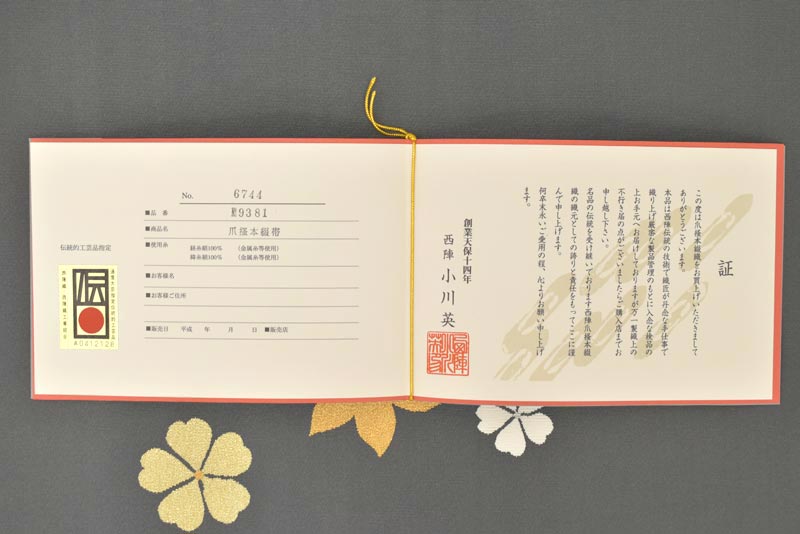 No. 6744
■品　番 №9381
■商品名 爪掻本綴帯
■使用糸 経糸絹100%　（金属糸等使用）
緯糸絹100%　（金属糸等使用）
■お客様名
■お客様ご住所
■販売日　平成　年　月　日　■販売店
伝統的工芸品指定
伝
経済大臣指定伝統的工芸品
西陣織　西陣織工業組合
A041212E
証
この度は爪掻本綴織をお買上げいただきまして
ありがとうございます。
本品は西陣伝統の技術で織匠が丹念な手仕事で
織り上げ厳重な製品管理のもとに入念な検品の
上お手元へお届けしておりますが万一製織上の
不行き届の点がございましたらご購入店までお
申し越し下さい。
名品の伝統を受け継いでおります西陣爪掻本綴
織の織元としての誇りと責任をもってここに謹
んで申し上げます。
何卒末永いご愛用の程、心よりお願い申し上げ
ます。
創業天保十四年
西陣 小川英